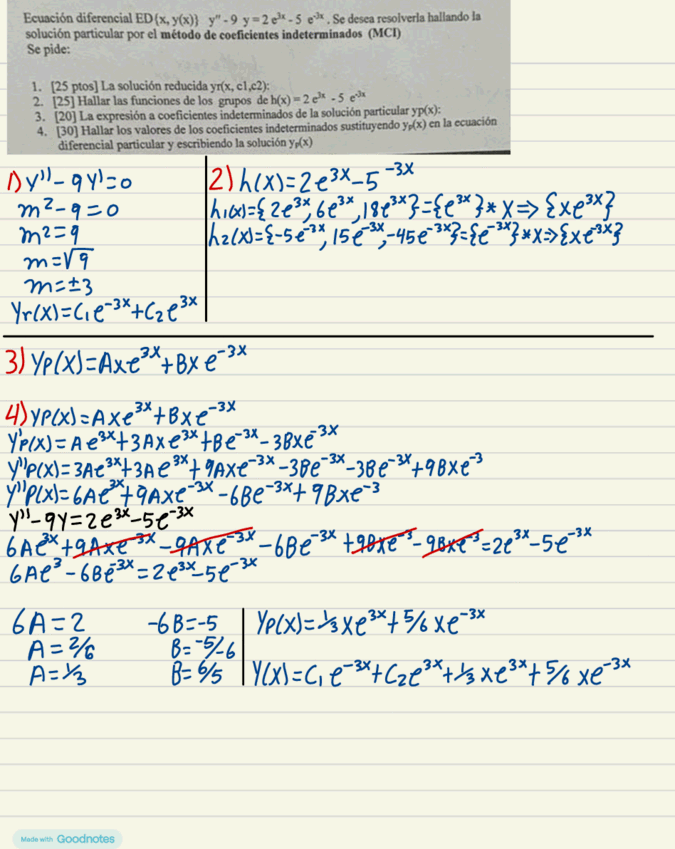 Ecuación diferencial ED{x, y(x)} y'' - 9 y = 2 e^3x - 5 e^-3x. Se desea resolverla hallando la
solución particular por el método de coeficientes indeterminados (MCI)
Se pide:
1. [25 ptos] La solución reducida yr(x, c1,c2):
2. [25] Hallar las funciones de los grupos de h(x) = 2 e^3x - 5 e^-3x
3. [20] La expresión a coeficientes indeterminados de la solución particular yp(x):
4. [30] Hallar los valores de los coeficientes indeterminados sustituyendo yp(x) en la ecuación
diferencial particular y escribiendo la solución yp(x)
1) y'' - 9y' = 0
m² - 9 = 0
m² = 9
m = √9
m = ±3
Yr(x) = C₁e^-3x + C₂e^3x
2) h(x) = 2e^3x - 5^-3x
h₁(x) = {2e^3x, 6e^3x, 18e^3x} = {e^3x} * x => {xe^3x}
h₂(x) = {-5e^-3x, 15e^-3x, -45e^-3x} = {e^-3x} * x => {xe^-3x}
3) Yp(x) = Axe^3x + Bxe^-3x
4) Yp(x) = Axe^3x + Bxe^-3x
Y'p(x) = Ae^3x + 3Axe^3x + Be^-3x - 3Bxe^-3x
Y''p(x) = 3Ae^3x + 3Ae^3x + 9Axe^-3x - 3Be^-3x - 3Be^-3x + 9Bxe^-3
Y''p(x) = 6Ae^3x + 9Axe^-3x - 6Be^-3x + 9Bxe^-3
Y'' - 9Y = 2e^3x - 5e^-3x
6Ae^3x + 9Axe^-3x - 9Axe^-3x - 6Be^-3x + 9Bxe^-3 - 9Bxe^-3 = 2e^3x - 5e^-3x
6Ae^3 - 6Be^-3x = 2e^3x - 5e^-3x
6A = 2
A = 2/6
A = 1/3
-6B = -5
B = -5/-6
B = 6/5
Yp(x) = 1/3 xe^3x + 5/6 xe^-3x
Y(x) = C₁e^-3x + C₂e^3x + 1/3 xe^3x + 5/6 xe^-3x
Made with Goodnotes